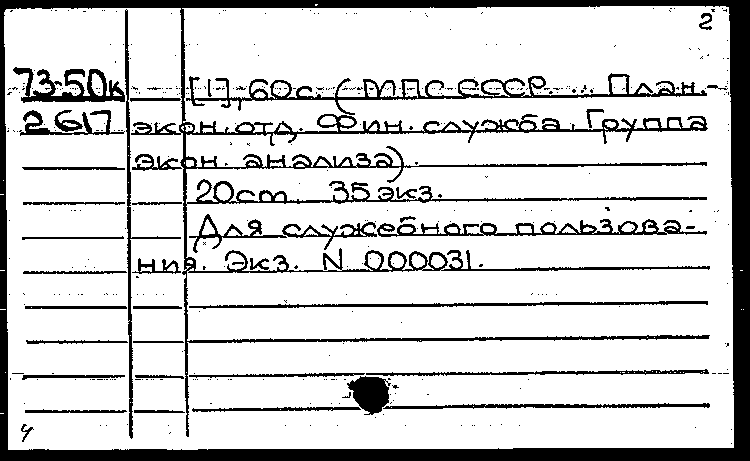 2
73-50к [1], 60 с. (МПС СССР. ... План.-
2617 экон. отд. Фин. служба. Группа
экон. анализа).
20 ст. 35 экз.
Для служебного пользова-
ния. Экз. N 000031.
4